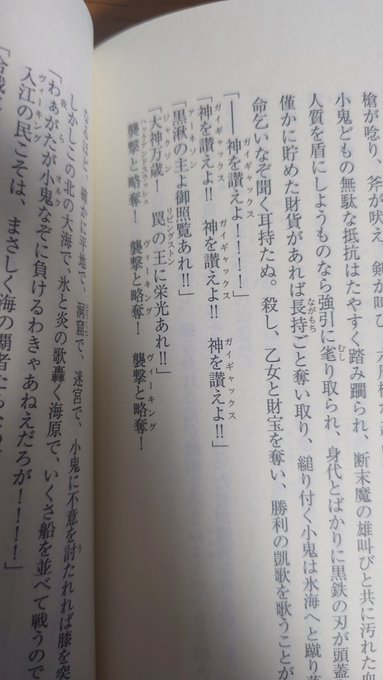 槍が唸り、斧が吠え、剣が叫び
小鬼どもの無駄な抵抗はたやすく踏み躙られ、断末魔の雄叫びと共に汚れた血
人質を盾にしようものなら強引に毟り取られ、身代とばかりに黒鉄の刃が頭蓋
僅かに貯めた財貨があれば長持ごと奪い取り、縋り付く小鬼は氷海へと蹴り
命乞いなぞ聞く耳持たぬ。殺し、乙女と財宝を奪い、勝利の凱歌を歌うことが
「――神を讃えよ!!!!」
「神を讃えよ!!　神を讃えよ!!　神を讃えよ!!」
「黒湫の主よ御照覧あれ!!」
「大神万歳!　罠の王に栄光あれ!!」
襲撃と略奪!　襲撃と略奪!　襲撃と略奪!
なるほど、確かに平地で、洞窟で、迷宮で、小鬼に不意を討たれれば膝を突
しかしこの北の大海で、氷と炎の歌轟く海原で、いくさ船を並べて戦うので
「わぁがたが小鬼なぞに負けるわきゃあねえだろが!!!!」
入江の民こそは、まさしく海の覇者たち